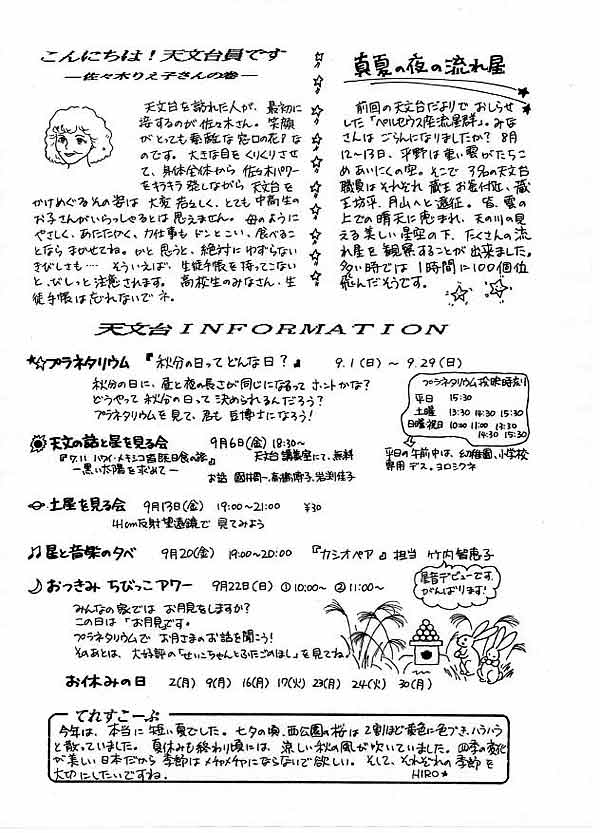 こんにちは！天文台員です
―佐々木りえ子さんの巻―
天文台を訪れた人が、最初に
接するのが佐々木さん。笑顔
がとっても素敵な窓口の花？な
のです。大きな目をくりくりさせ
て、身体全体から佐々木パワー
をキラキラ発しながら天文台を
かけめぐるその姿は大変若々しく、とても中高生の
お子さんがいらっしゃるとは思えません。母のように
やさしく、あたたかく、力仕事もドンとこい、食べるこ
とならまかせてね。かと思うと、絶対にゆずらない
きびしさも…… そういえば、生徒手帳を持ってこない
と、びしっと注意されます。高校生のみなさん、生
徒手帳は忘れないでネ。
真夏の夜の流れ星
前回の天文台だよりでおしらせ
した「ペルセウス座流星群」。みな
さんはごらんになりましたか？8月
12～13日、平野は重い雲がたちこ
めあいにくの空。そこで3名の天文台
職員はそれぞれ蔵王お釜付近、蔵
王坊平、月山へと遠征。皆、雲の
上での晴天に恵まれ、天の川の見
える美しい星空の下、たくさんの流
れ星を観察することが出来ました。
多い時では1時間に100個位
飛んだそうです。
天文台INFORMATION
プラネタリウム 『秋分の日ってどんな日？』 9.1(日)～9.29(日)
秋分の日に、昼と夜の長さが同じになるってホントかな？
どうやって秋分の日って決められるんだろう？
プラネタリウムを見て、君も豆博士になろう！
プラネタリウム投映時刻
平日 15:30
土曜 13:30 14:30 15:30
日曜祝日 10:00 11:00 13:30
14:30 15:30
平日の午前中は、幼稚園、小学校
専用デス。ヨロシクネ
天文の話と星を見る会 9月6日(金) 18:30～
『7.11 ハワイ・メキシコ皆既日食の旅』 天文台講義室にて、無料
―黒い太陽を求めて― お話
土星を見る会 9月13日(金) 19:00～21:00 ¥30
41cm反射望遠鏡で見てみよう
星と音楽の夕べ 9月20(金) 19:00～20:00 『カシオペア』 担当 竹内智恵子
星音デビューです。
がんばります！
おつきみ ちびっこアワー 9月22日(日) ①10:00～ ②11:00～
みんなの家ではお月見をしますか？
この日は「お月見」です。
プラネタリウムでお月さまのお話を聞こう！
そのあとは、大好評の「せいこちゃんとふたごのほし」を見てね。
お休みの日 2(月) 9(月) 16(月) 17(火) 23(月) 24(火) 30(月)
てれすこーぷ
今年は、本当に短い夏でした。七夕の頃、西公園の桜は2割ほど黄色に色づき、ハラハラ
と散っていました。夏休みも終わり頃には、涼しい秋の風が吹いていました。四季の変化
が美しい日本だから季節はメチャメチャにならないで欲しい。そして、それぞれの季節を
大切にしたいですね。 HIRO★